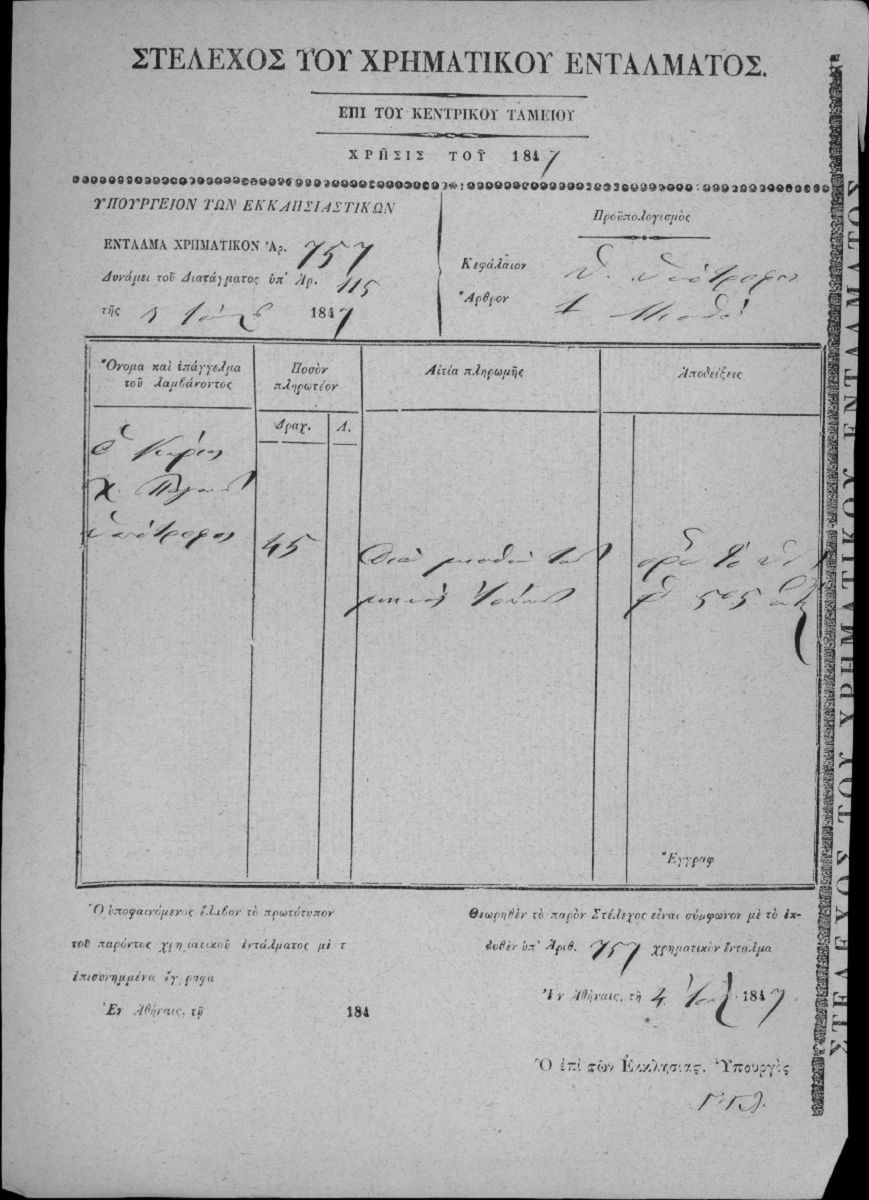 ΣΤΕΛΕΧΟΣ ΤΟΥ ΧΡΗΜΑΤΙΚΟΥ ΕΝΤΑΛΜΑΤΟΣ.
ΕΠΙ ΤΟΥ ΚΕΝΤΡΙΚΟΥ ΤΑΜΕΙΟΥ
ΧΡΗΣΙΣ ΤΟΥ 1847
ΥΠΟΥΡΓΕΙΟΝ ΤΩΝ ΕΚΚΛΗΣΙΑΣΤΙΚΩΝ
ΕΝΤΑΛΜΑ ΧΡΗΜΑΤΙΚΟΝ Ἀρ. 757
Δυνάμει τοῦ Διατάγματος ὑπ' Ἀρ. 115
τῆς 1847
Προϋπολογισμὸς
Κεφάλαιον Θ. Ὑπότροφοι
Ἄρθρον 1 Μισθοὶ
Ὄνομα καὶ ἐπάγγελμα
τοῦ λαμβάνοντος
Ποσὸν
πληρωτέον
Δραχ. Λ.
Αἰτία πληρωμῆς
Ἀποδείξεις
ὁ Κύριος
Χ.
ὑπότροφος
45
Διὰ μισθόν του
μηνὸς
505
Ἔγγραφ
Ὁ ὑποφαινόμενος ἔλαβον τὸ πρωτότυπον
τοῦ παρόντος χρηματικοῦ ἐντάλματος μὲ τ
ἐπισυνημμένα ἔγγραφα
Ἐν Ἀθήναις, τῇ 184
Θεωρηθὲν τὸ παρὸν Στέλεχος εἶναι σύμφωνον μὲ τὸ ἐκ-
δοθὲν ὑπ' Ἀριθ. 757 χρηματικὸν ἔνταλμα
Ἐν Ἀθήναις, τῇ 4 1847
Ὁ ἐπὶ τῶν Ἐκκλησιας. Ὑπουργὸς
ΣΤΕΛΕΧΟΣ ΤΟΥ ΧΡΗΜΑΤΙΚΟΥ ΕΝΤΑΛΜΑΤΟΣ